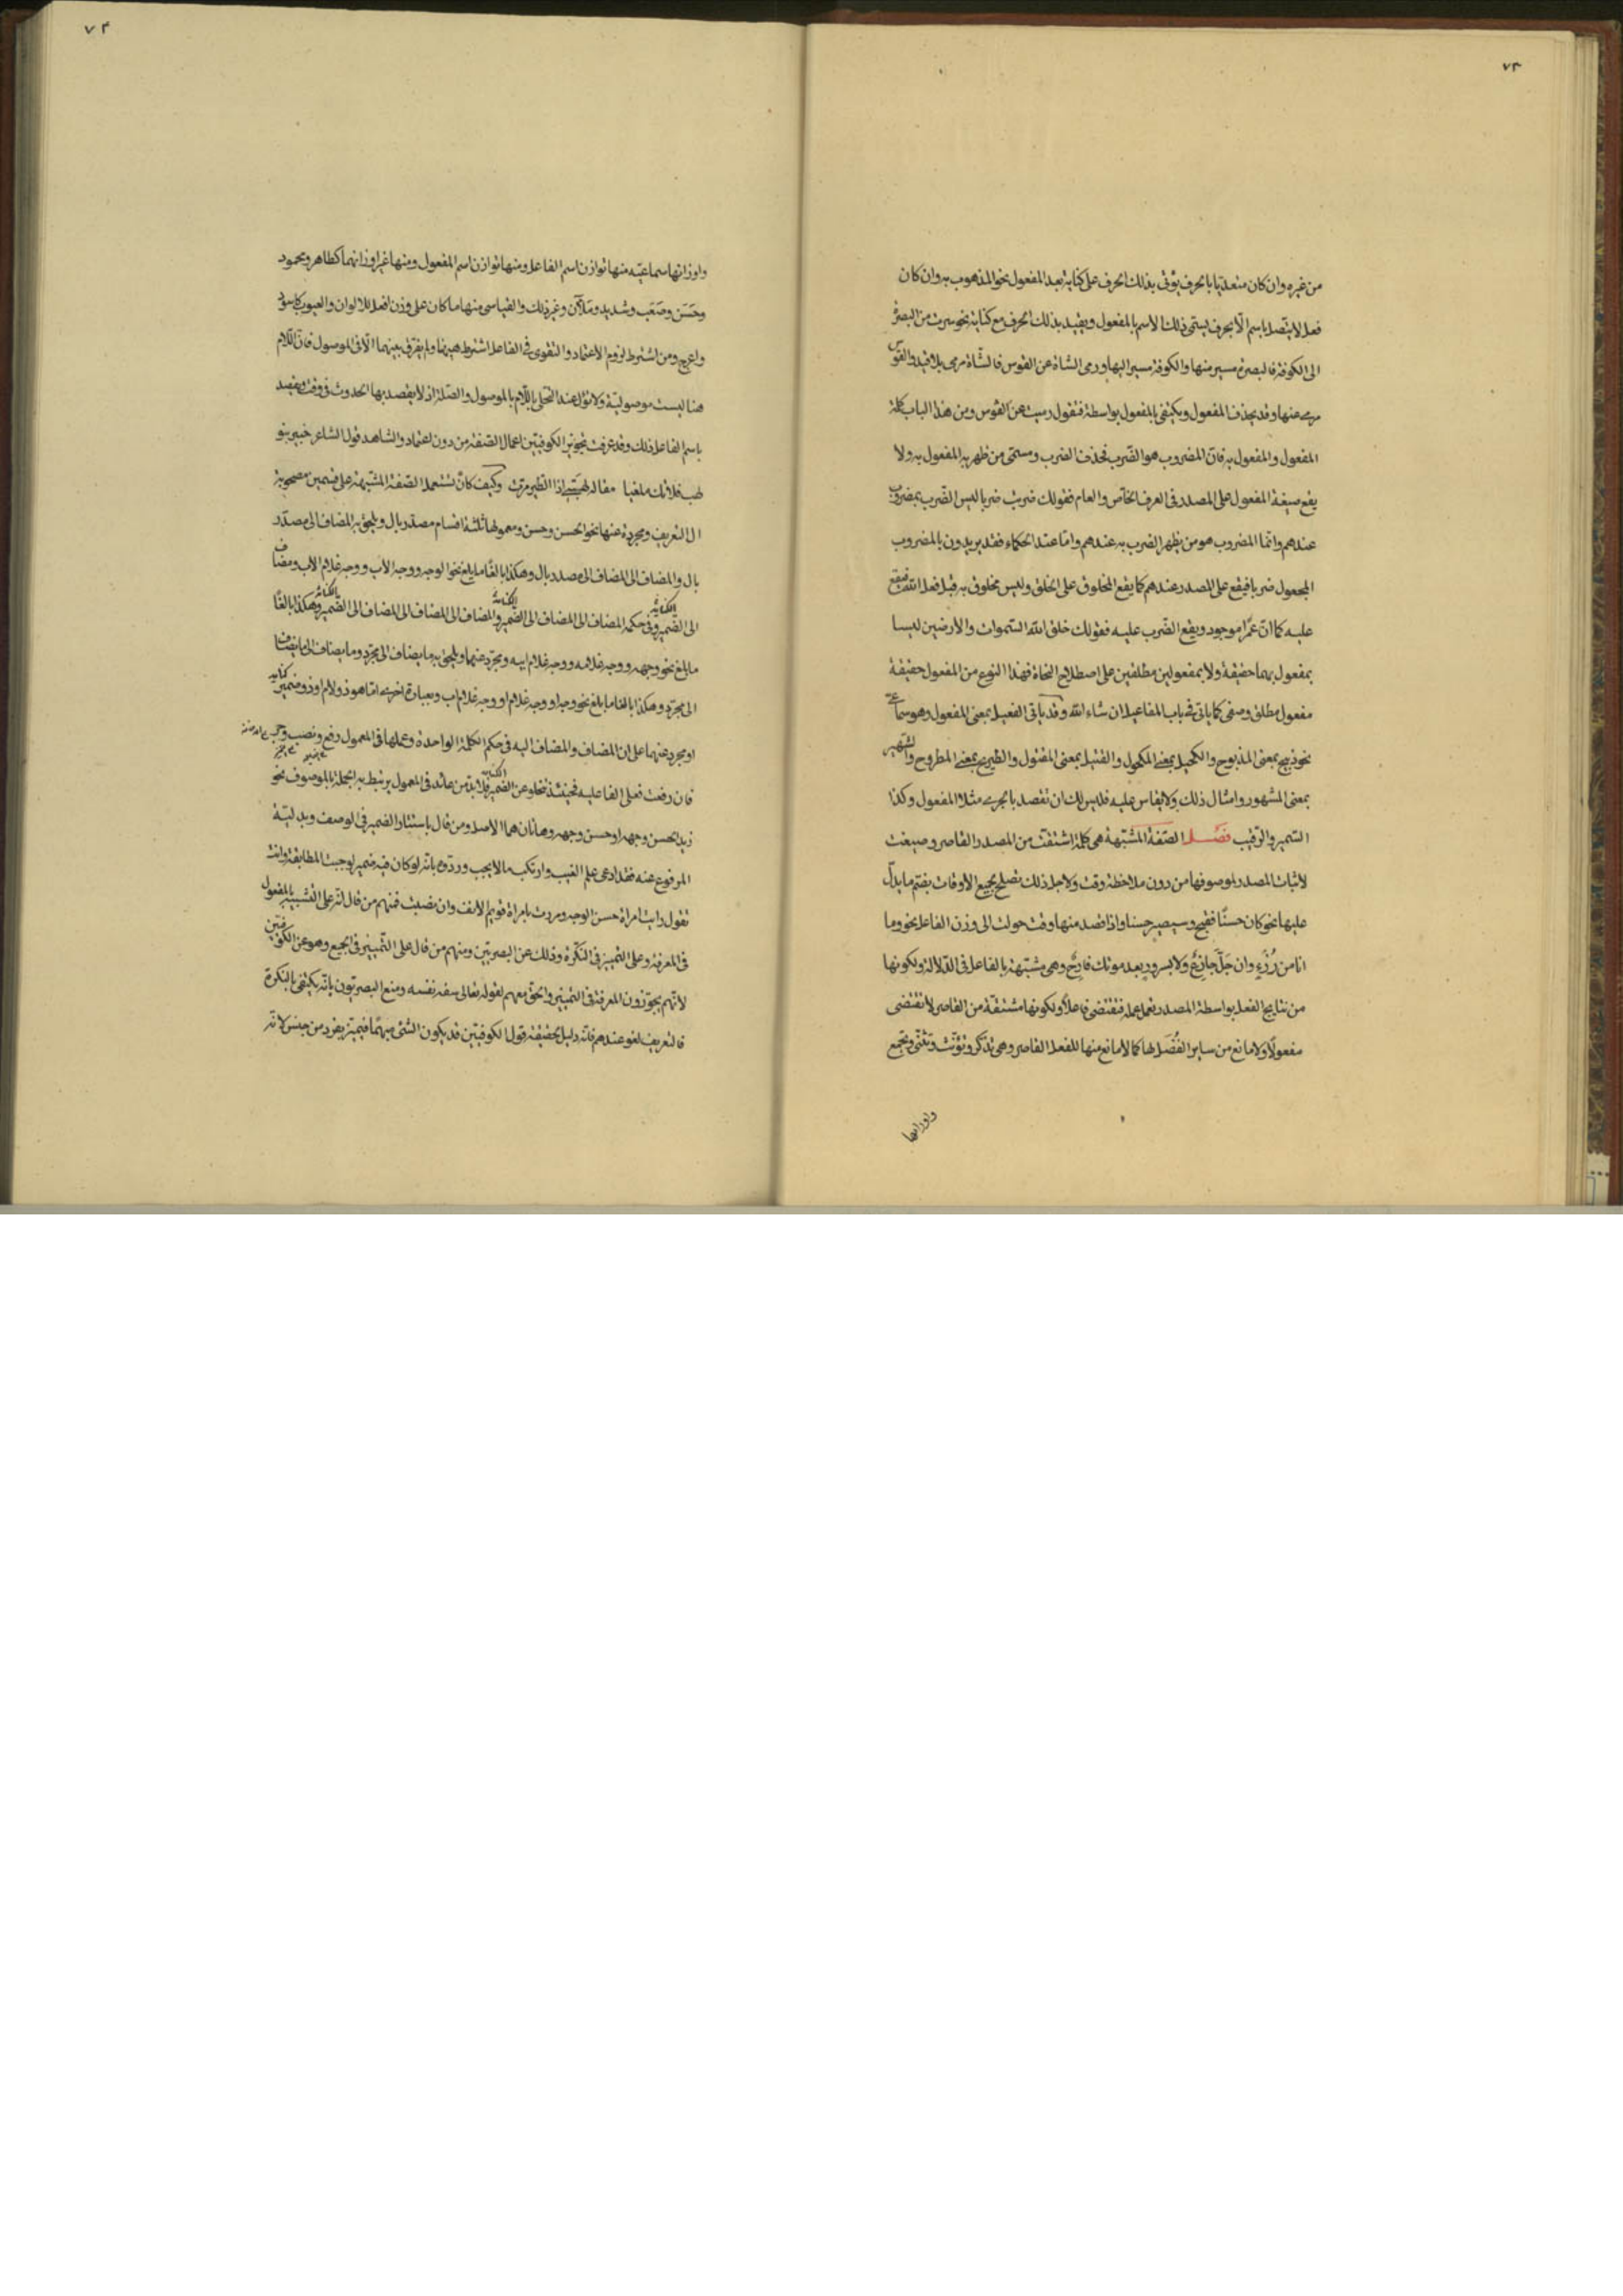 ٧٣
من غيره وان كان متعديا بالحرف يؤتى بذلك الحرف على كنايه بعد المفعول نحو المذهوب به وان كان
فعل لا يتصل باسم الّا بحرف يسمى ذلك الاسم بالمفعول ويقيد بذلك الحرف مع كنايه نحو سرت من البصرة
الى الكوفة فالبصرة مسير منها والكوفة مسير اليها ورمى الشاة عن القوس فالشاة مرمى بلا قيد والقوس
مرمى عنها وقد يحذف المفعول ويكتفى بالمفعول بواسطة فتقول رميت عن القوس ومن هذا الباب كلمة
المفعول والمفعول به فان المضروب هو الضّرب نحذف الضرب ومسمى من ظهر به المفعول به ولا
يقع صيغة المفعول على المصدر فى العرف الخاص والعام فقولك ضربت ضربا ليس الضّرب بمضروب
عندهم وانما المضروب هو من يظهر الضرب به عندهم وامّا عند الحكماء فقد يريدون بالمضروب
المجعول ضربا فيقع على المصدر عندهم كما يقع المخلوق على الخلق وليس مخلوق به قبل فعل الله فيقع
عليه كما انّ عمرا موجود ويقع الضّرب عليه فقولك خلق الله السّموات والارضين ليسا
بمفعول بهما حقيقة ولا بمفعولين مطلقين على اصطلاح النحاة فهذا النوع من المفعول حقيقة
مفعول مطلق وصفى كما ياتى فى باب المفاعيل ان شاء الله وقد ياتى الفعيل بمعنى المفعول وهو سماعى
نحو ذبيح بمعنى المذبوح والكحيل بمعنى المكحول والقتيل بمعنى المقتول والطريح بمعنى المطروح والشهير
بمعنى المشهور وامثال ذلك ولا يقاس عليه فليس لك ان تقصد بالجرى مثلا المفعول وكذا
السّمير والرقيب فصل الصّفة المشبّهة هى كلمة اشتقّت من المصدر القاصر وصيغت
لاثبات المصدر لموصوفها من دون ملاحظة وقت ولاجل ذلك تصلح لجميع الاوقات بضمّ ما يدلّ
عليها نحو كان حسنًا فقبح وسيصير حسنا واذا قصد منها وقت حولت الى وزن الفاعل نحو وما
انا من رُزْءٍ وان جَلَّ جازعٌ ولا بسرور بعد موتك فارحٌ وهى مشبّهة بالفاعل فى الدّلالة ولكونها
من نتايج الفعل بواسطة المصدر تعمل عمله فتقتضى فاعلًا ولكونها مشتقّة من القاصر لا تقتضى
مفعولًا ولا مانع من ساير الفُضَل لها كما لا مانع منها للفعل القاصر وهى تذكّر وتؤنّث وتثنّى وتجمع
واوزانها
٧٤
واوزانها سماعيّه منها توازن اسم الفاعل ومنها توازن اسم المفعول ومنها غير اوزانهما كطاهر ومحمود
وحَسَن وصَعْب وشديد ومَلآن وغير ذلك والقياسى منها ما كان على وزن افعل للالوان والعيوب كاسود
واعرج ومن اشترط لزوم الاعتماد والتقوى فى الفاعل اشترط هيهنا ولم يفرق بينهما الّا فى الموصول فان اللّام
هنا ليست موصولية ولا تؤل عند التحلى باللّام بالموصول والصّلة اذ لا يقصد بها الحدوث فى وقت ويقصد
باسم الفاعل ذلك وقد عرفت تجويز الكوفيّين اعمال الصّفة من دون اعتماد والشاهد قول الشاعر خبير بنو
لهب فلا تك ملغيا مقاله لهبىّ اذا الطير مرت وكيف كان تستعمل الصّفة المشبّهة على قسمين مصحوبة
ال التعريف ومجردة عنها نحو الحسن وحسن ومعمولها ثلثة اقسام مصدّر بال ويلحق به المضاف الى مصدّر
بال والمضاف الى المضاف الى مصدر بال وهكذا بالغًا ما بلغ نحو الوجه ووجه الاب ووجه غلام الاب ومضاف
الى الضّمير وفى حكمه المضاف الى المضاف الى الضّمير والمضاف الى المضاف الى المضاف الى الضّمير وهكذا بالغًا
الكناية الكناية الكناية
ما بلغ نحو وجهه ووجه غلامه ووجه غلام ابيه ومجرّد عنهما ويلحق به ما يضاف الى مجرّد وما يضاف الى ما يضاف
الى مجرّد وهكذا بالغا ما بلغ نحو وجه او وجه غلام او وجه غلام اب وبعبارة اخرى امّا هو ذو لام او ذو ضمير
كنايه
او مجرد عنهما على ان المضاف والمضاف اليه فى حكم الكلمة الواحدة وعملها فى المعمول رفع ونصب وجر
فان رفعت فعلى الفاعليه فحينئذ تخلو عن الضّمير فلا بدّ من عائد فى المعمول يرتبط به الجملة بالموصوف نحو
الكناية
زيد الحسن وجهه او حسن وجهه وهاتان هما الاصل ومن قال باستتار الضّمير فى الوصف وبدليّة
المرفوع عنه فقد ادعى علم الغيب وارتكب ما لا يجب وردّوه بانّه لو كان فيه ضمير لوجبت المطابقة وانت
تقول رايت امراة حسن الوجه ومررت بامراة قويم الانف وان نصبت فمنهم من قال انّه على التشبيه بالمفعول
فى المعرفة وعلى التميز فى النّكرة وذلك عن البصريّين ومنهم من قال على التّمييز فى الجميع وهو عن الكوفيّين
لانّهم يجوّزون المعرفة فى التمييز والحق معهم لقوله تعالى سفه نفسه ومنع البصريّون بانّه يكتفى بالنكرة
فالتعريف لغو عندهم قلت دليل تحقيقه قول الكوفيّين قد يكون الشئ مبهمًا فيميّز بفرد من جنس لانّه